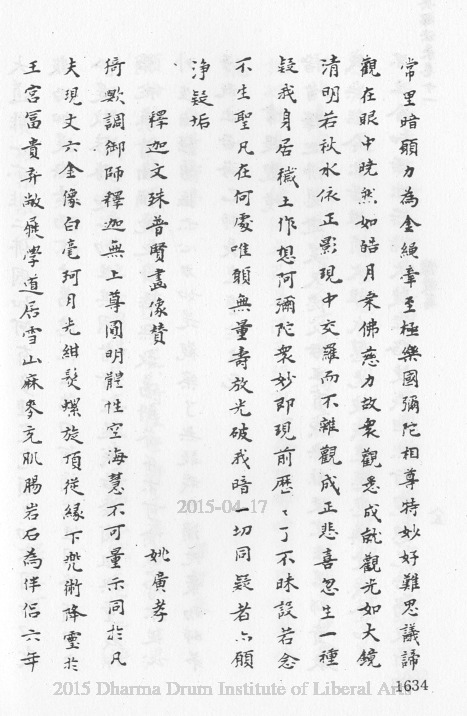 常里暗願力為金繩牽至極樂國彌陀相尊特妙好難思議諦
觀在眼中晄然如皓月乘佛慈力故衆觀悉成就觀光如大鏡
清明若秋水依正影現中交羅而不雜觀成正悲喜忽生一種
疑我身居穢土作想阿彌陀衆妙即現前歷〻了不昧設若念
不生聖凡在何處唯願無量壽放光破我暗一切同疑者亦願
淨疑垢
釋迦文殊普賢畫像贊
姚廣孝
猗歟調御師釋迦無上尊圓明體性空海慧不可量示同於凡
夫現丈六金像白毫珂月光紺髮螺旋頂從緣下兜術降靈於
王宮冨貴弃敝屣學道居雪山麻麥充肌腸岩石為伴侶六年
2015-04-17
2015 Dharma Drum Institute of Liberal Arts
1634